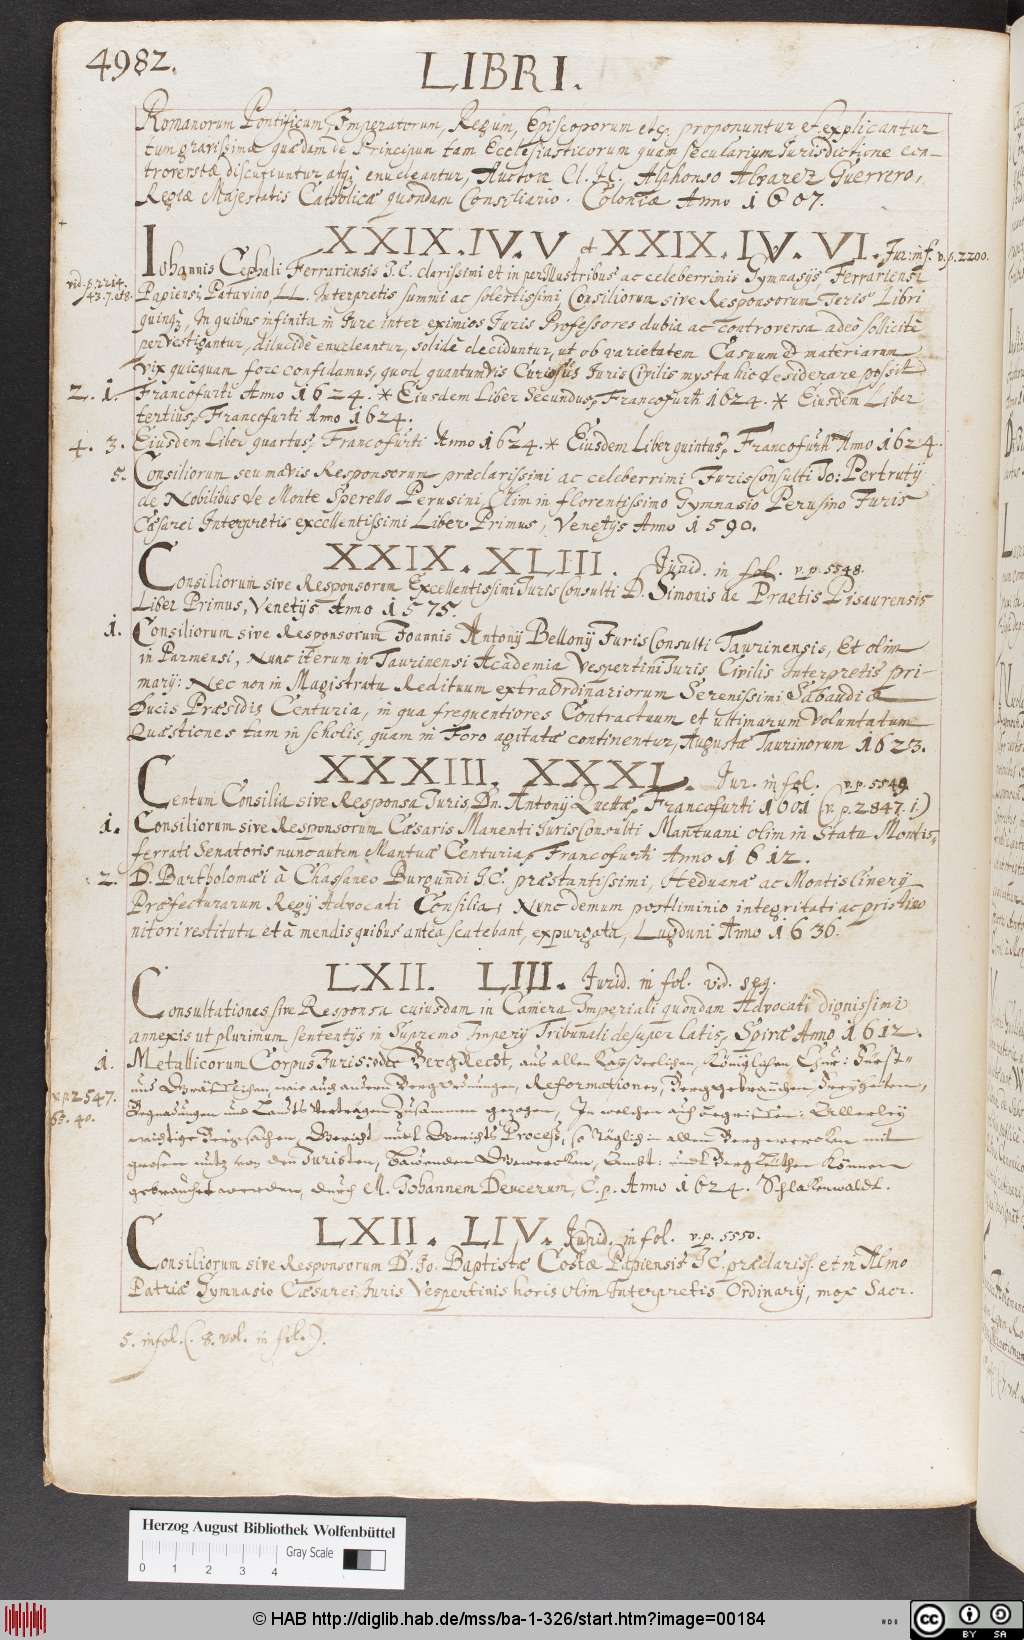 4982.
LIBRI.
Romanorum Pontificum, Imperatorum, Regum, Episcoporum etc, proponuntur et explicantur
tum gravissimæ quædam de Principum tam Ecclesiasticorum quam secularium Jurisdictione con-
troversiæ discutiuntur atq; enucleantur, Auctore Cl. JC, Alphonso Alvarez Guerrero,
Regiæ Majestatis Catholicæ quondam Consiliario. Coloniæ Anno 1607.
XXIX.IV.V et XXIX.IV.VI. Jur: in f. v.p.2200.
Iohannis Cephali Ferrariensis J.C. clarissimi et in perillustribus ac celeberrimis Gymnasijs, Ferrariensi
vid.p.2214.
43.7. et 8.
Papiensi, Patavino, LL. Interpretis summi ac solertissimi, Consiliorum sive Responsorum Juris Libri
quinq;, In quibus infinita in Jure inter eximios Juris Professores dubia ac controversa adeò sollicitè
pervestigantur, dilucidè enucleantur, solidè deciduntur, ut ob varietatem Casuum et materiarum
vix quicquam fore confidamus, quod quantumvis Curiosus Juris Civilis mysta hic desiderare possit
2. 1. Francofurti Anno 1624. * Eiusdem Liber Secundus, Francofurti 1624. * Eiusdem Liber
tertius, Francofurti Anno 1624.
4. 3. Eiusdem Liber quartus, Francofurti Anno 1624. * Eiusdem Liber quintus, Francofurti Anno 1624.
5. Consiliorum seu mavis Responsorum præclarissimi ac celeberrimi JurisConsulti Jo: Petrutij
de Nobilibus de Monte Sperello Perusini, Olim in florentissimo Gymnasio Perusino Juris
Cæsarei Interpretis excellentissimi Liber Primus, Venetijs Anno 1590.
XXIX. XLIII. Jurid. in fol. v.p.5548.
Consiliorum sive Responsorum Excellentissimi JurisConsulti D. Simonis de Praetis Pisaurensis
Liber Primus, Venetijs Anno 1575.
1. Consiliorum sive Responsorum Joannis Antonij Bellonij JurisConsulti Taurinensis, Et olim
in Parmensi, Nunc iterum in Taurinensi Academia Vespertini Juris Civilis Interpretis pri-
marij: Nec non in Magistratu Redituum extraOrdinariorum Serenissimi Sabaudiæ
Ducis Præsidis Centuria, in qua frequentiores Contractuum et ultimarum voluntatum
Quæstiones tam in scholis, quam in Foro agitatæ continentur, Augustæ Taurinorum 1623.
XXXIII. XXXL. Jur. in fol. v.p.5549.
Centum Consilia sive Responsa Juris, Dn. Antonij Quettæ, Francofurti 1601 (v.p.2847.1.)
1. Consiliorum sive Responsorum Cæsaris Manenti JurisConsulti Mantuani olim in Statu Montis-
ferrati Senatoris nunc autem Mantuæ Centuria, Francofurti Anno 1612.
2. D. Bartholomæi à Chasaneo Burgundi J.C. præstantissimi, Heduanæ ac Montis Cinerij
Præfecturarum Regij Advocati Consilia, Nunc demum postliminio integritati ac pristino
nitori restituta et à mendis quibus antea scatebant, expurgata, Lugduni Anno 1636.
LXII. LIII. Jurid. in fol. vid. seq.
Consultationes sive Responsa cuiusdam in Camera Imperiali quondam Advocati dignissimi
annexis ut plurimum sententijs in Supremo Imperij Tribunali desuper latis, Spiræ Anno 1612.
1. Metallicorum Corpus Juris: oder BergRecht, aus allen Kaÿserlichen, Königlichen Chur: Fürst:
v.p.2547.
65. 40.
und Gräfflichen wie auch andern Bergordnungen, Reformationen, Berggebräuchen, Freyheiten,
Begnadungen und Landts Verträgen zusammen gezogen, In welchen auch begriffen: Allerley
wichtige Bergsachen, Gericht und Gerichts Process, so täglich in allen Bergwercken mit
grosem nutz von den Juristen, Bawenden Gewercken, Ambt: und Bergleuthen können
gebraucht werden, durch M. Johannem Deucerum, C.p. Anno 1624. Schlakenwaldt.
LXII. LIV. Jurid. in fol. v.p.5550.
Consiliorum sive Responsorum D. Jo. Baptistæ Costæ Papiensis JC. præclariss. et in Almo
Patriæ Gymnasio Cæsarei Juris Vespertinis horis olim Interpretis Ordinarij, mox Sacr.
5. in fol. (. 8. vol. in fol.).
Herzog August Bibliothek Wolfenbüttel
Gray Scale
0 1 2 3 4
© HAB http://diglib.hab.de/mss/ba-1-326/start.htm?image=00184
HAB
cc BY SA